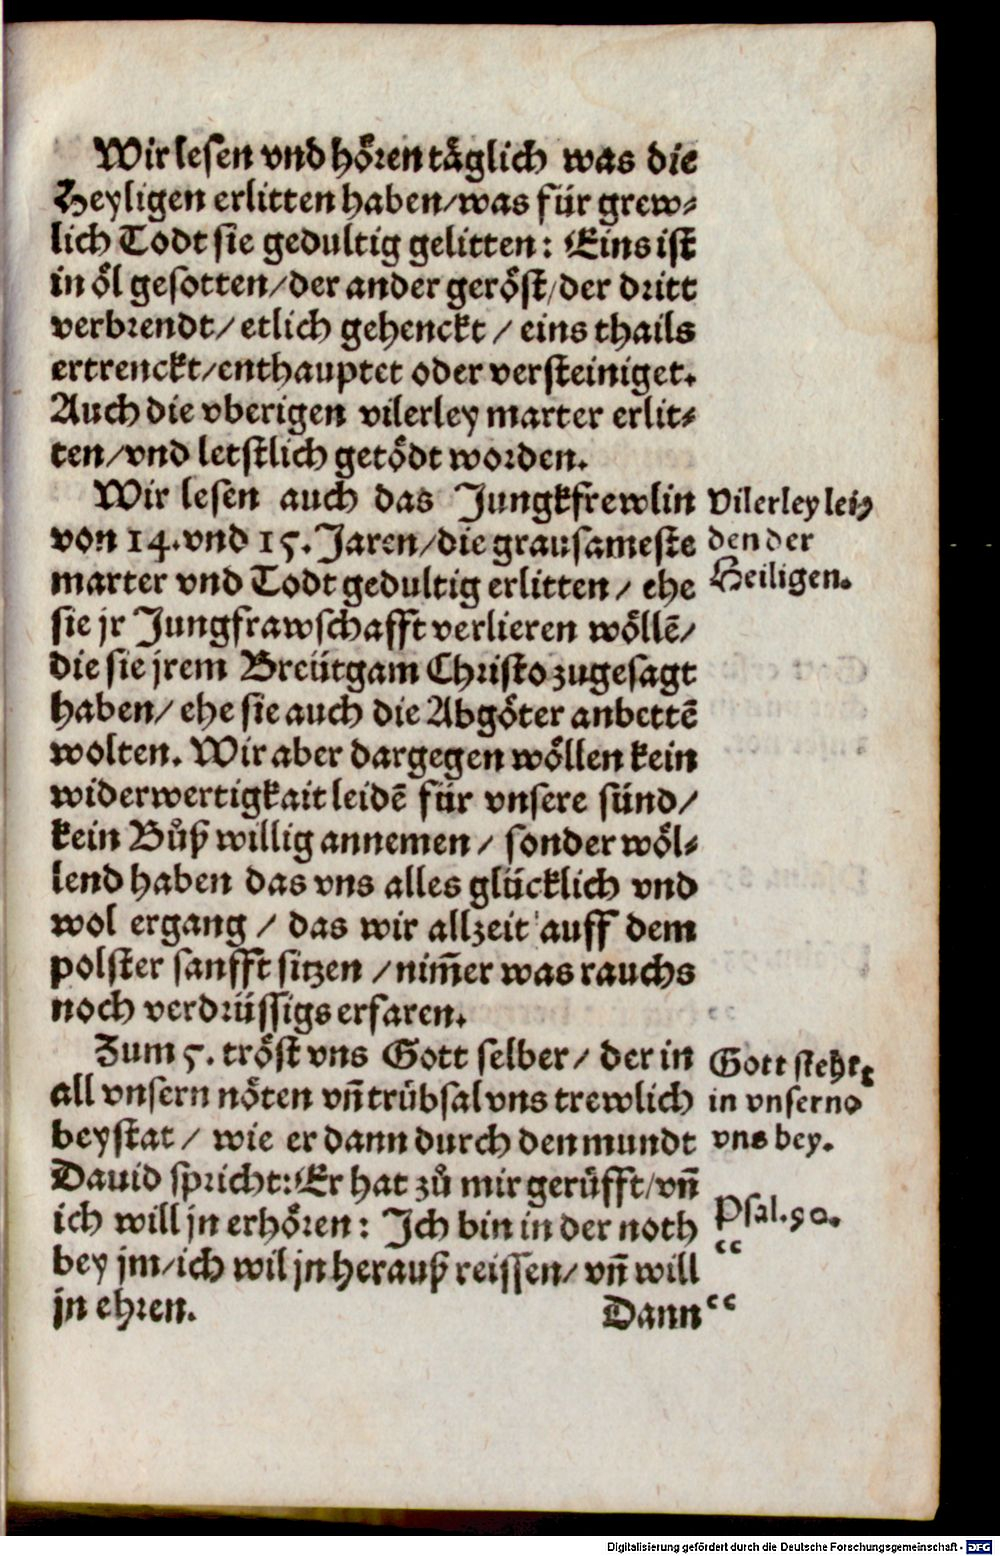 Wir lesen vnd hören täglich was die
Heyligen erlitten haben/was für grew⸗
lich Todt sie gedultig gelitten: Eins ist
in öl gesotten/der ander geröst/der dritt
verbrendt/ etlich gehenckt / eins thails
ertrenckt/enthauptet oder versteiniget.
Auch die vberigen vilerley marter erlit⸗
ten/vnd letstlich getödt worden.
Wir lesen auch das Jungkfrewlin
von 14.vnd 15. Jaren/die grausameste
marter vnd Todt gedultig erlitten / ehe
sie jr Jungfrawschafft verlieren wöllẽ/
die sie jrem Breütgam Christo zugesagt
haben/ ehe sie auch die Abgöter anbettẽ
wolten. Wir aber dargegen wöllen kein
widerwertigkait leidẽ für vnsere sünd/
kein Bůß willig annemen / sonder wöl⸗
lend haben das vns alles glücklich vnd
wol ergang / das wir allzeit auff dem
polster sanfft sitzen / nim̃er was rauchs
noch verdrüssigs erfaren.
Vilerley lei⸗
den der
Heiligen.
Zum 5. tröst vns Gott selber/ der in
all vnsern nöten vñ trübsal vns trewlich
beystat / wie er dann durch den mundt
Dauid spricht: Er hat zů mir gerüfft/vñ
ich will jn erhören: Ich bin in der noth
bey jm/ich wil jn herauß reissen/ vñ will
jn ehren.
Gott steht
in vnsern
vns bey.
Psal.90.
“
“
Dann
Digitalisierung gefördert durch die Deutsche Forschungsgemeinschaft - DFG